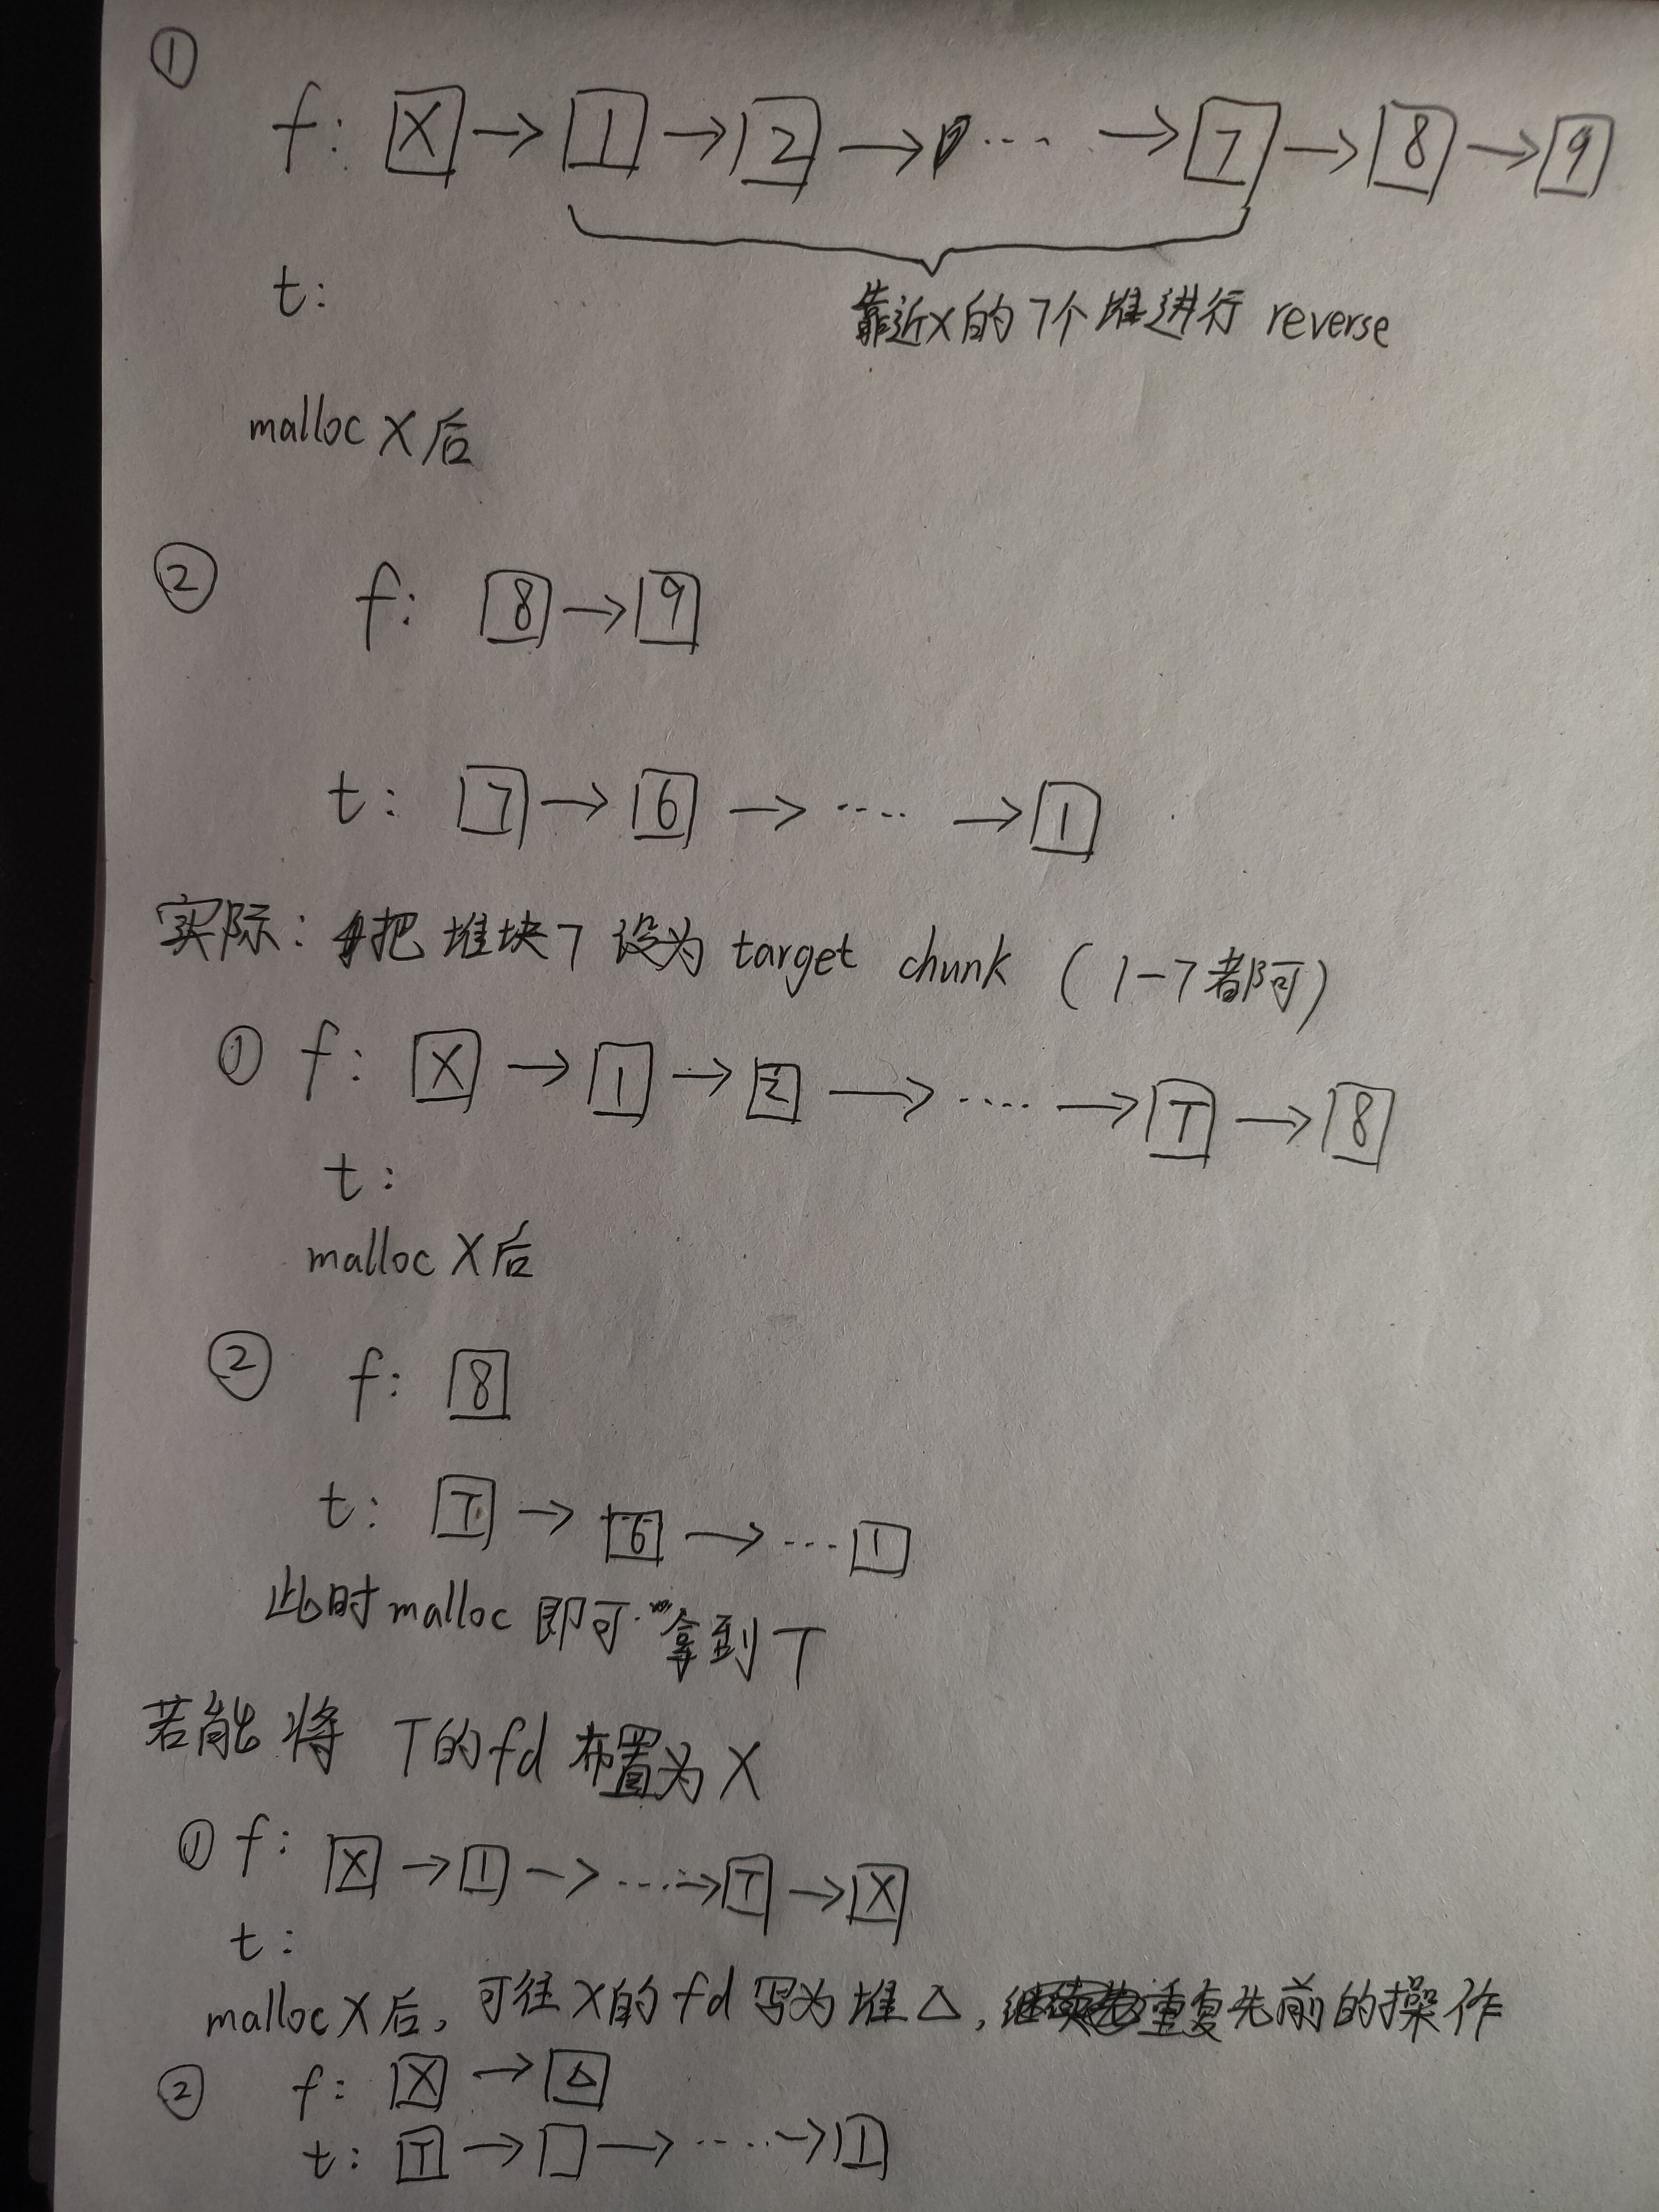 ①
f: X → 1 → 2 → ···· → 7 → 8 → 9
t:
靠近X的7个堆进行 reverse
malloc X后
②
f: 8 → 9
t: 7 → 6 → ···· → 1
实际: 把堆块7设为 target chunk (1-7都可)
① f: X → 1 → 2 → ···· → T → 8
t:
malloc X后
② f: 8
t: T → 6 → ··· 1
此时malloc即可拿到T
若能将 T的fd布置为X
① f: X → 1 → ···→ T → X
t:
malloc X后, 可往X的fd写为堆△, 重复先前的操作
② f: X → △
t: T → □ → ····→ 1